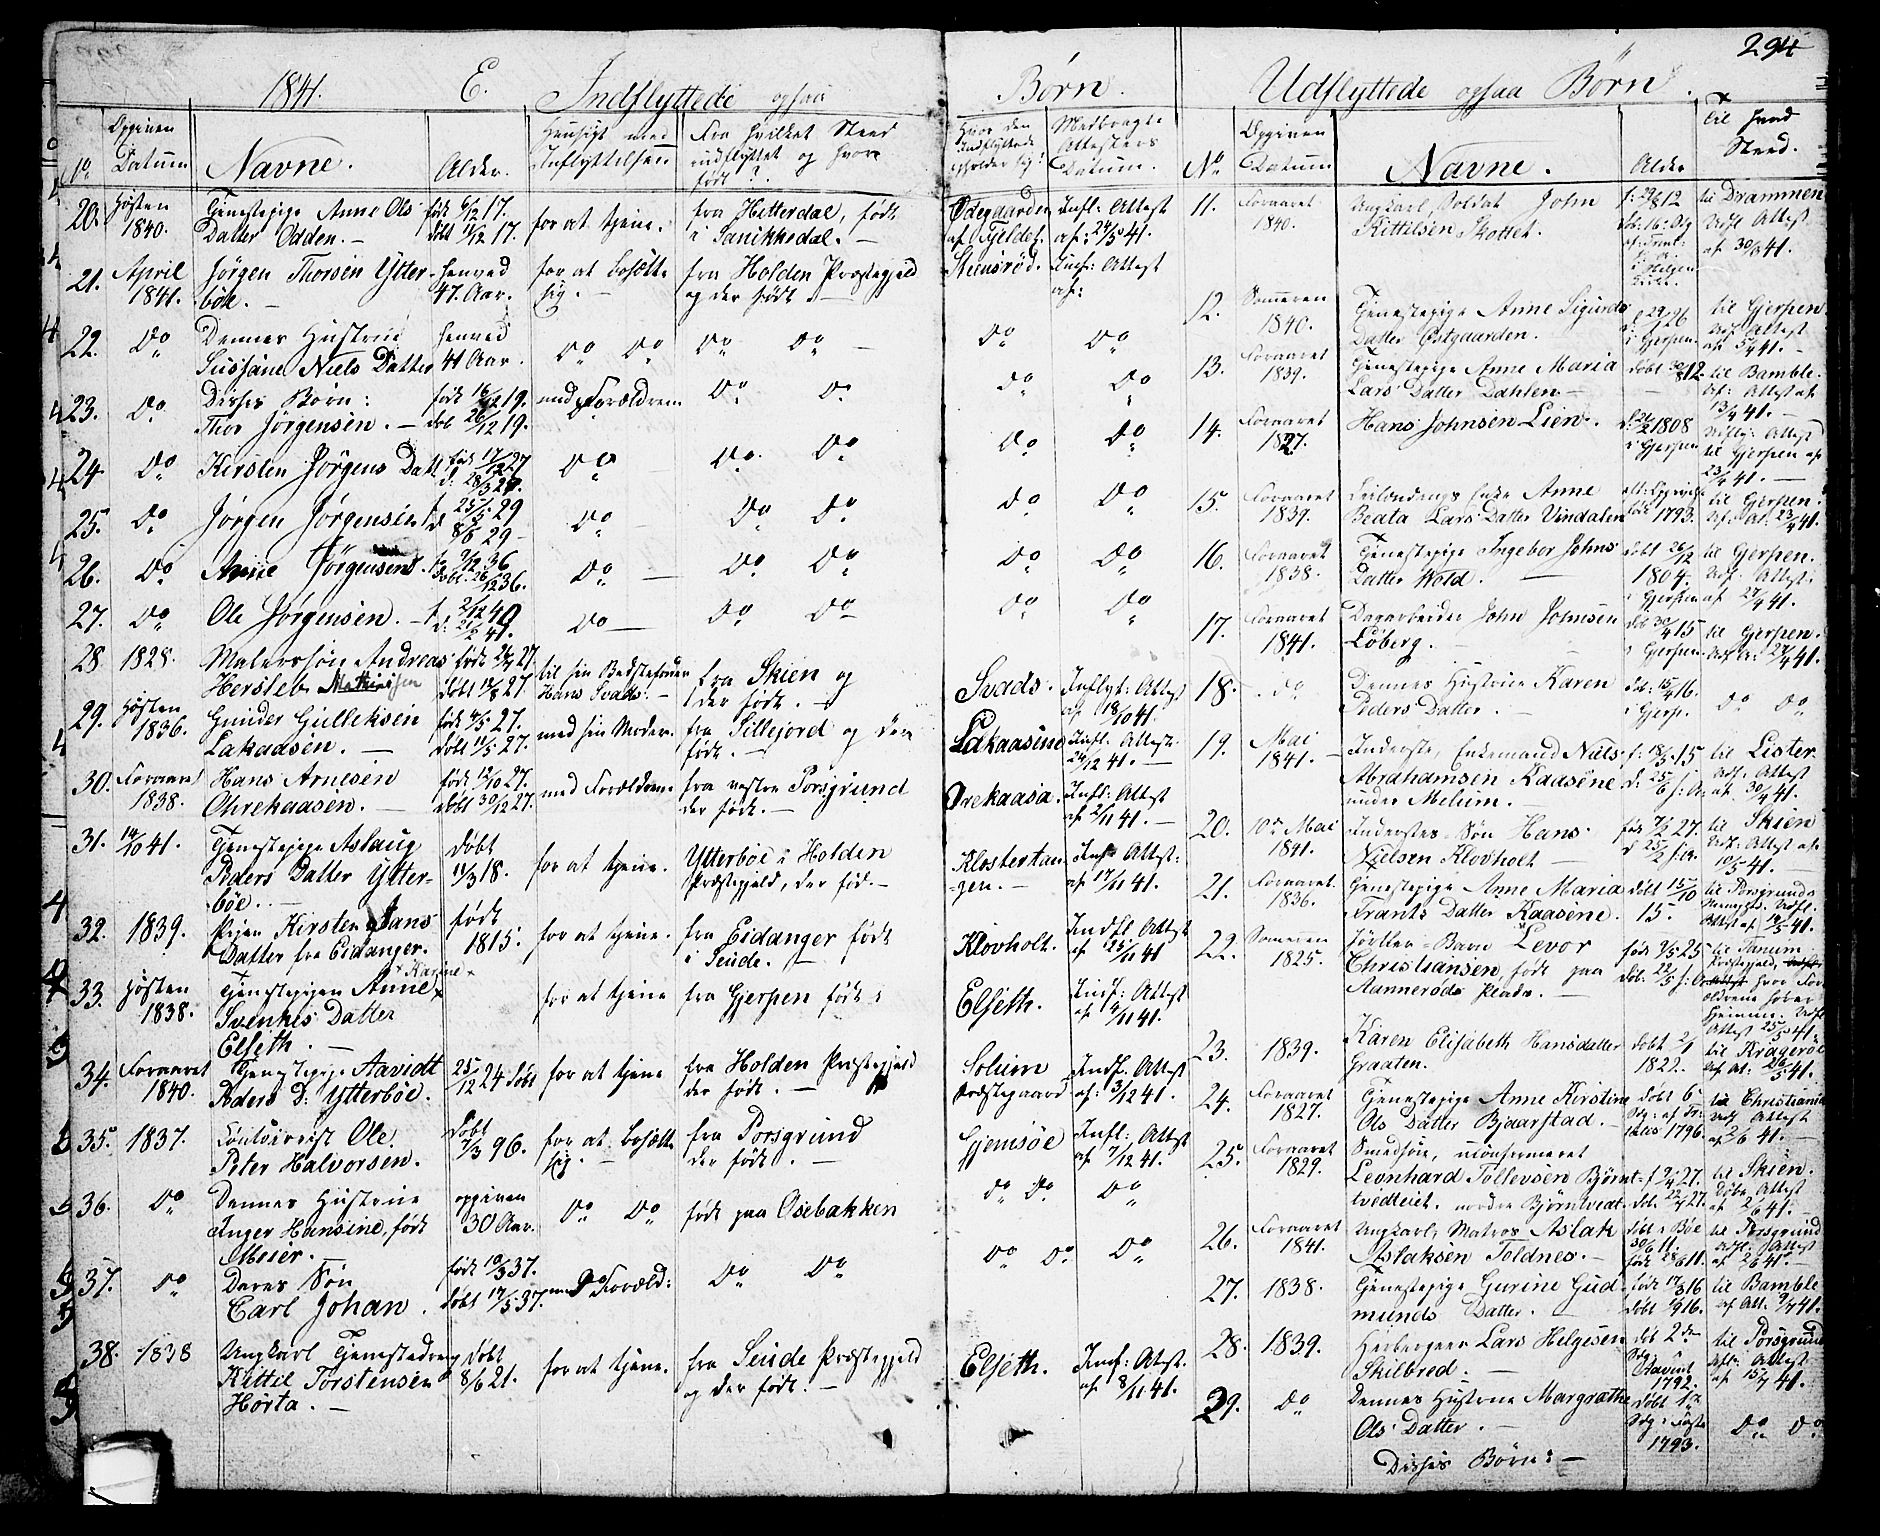 294
1841. E. Indflyttede ogsaa Børn.
Udflyttede ogsaa Børn.
No
Opgiven Datum
Navne.
Alder.
Hensigt med Indflyttelsen
Fra hvilket Sted udflyttet og hvor født?
Hvor den Indflyttede opholder sig?
Medbragte Attesters Datum.
20. Høsten 1840. Tjenestepige Anne Ols Datter Odden. — født 6/12 17. døbt 9/12 17. for at tjene. fra Hitterdal, født i Sanikkedal. — Ødegaarden af Fjeldet. Infl: Attest af: 24/5 41.
21. April 1841. Jørgen Thorsen Ytterbøe. — henved 47. Aar. for at bosætte sig. — fra Holden Præstegjeld og der født. — Steensrød. Inf: Attest af:
22. Do Dennes Hustrue Sussane Niels Datter henved 41 Aar. Do Do Do Do — Do Do
23. Do Disses Børn: Thor Jørgensen. — født 16/12 19. døb 26/12 19. med Forældrene Do Do Do Do
24. Do Kirsten Jørgens Datt. født 17/12 27 d: 28/3 28. Do — Do Do Do Do
25. Do Jørgen Jørgensen f 25/5 29 d 8/6 29 — Do — Do Do Do Do
26. Do Anne Jørgensens f. 9/12 36 døbt 26/12 36. Do — Do Do Do Do
27. Do Ole Jørgensen. — f. 2/12 40 d: 21/2 41. Do — Do Do Do Do
28 1828. Malerssøn Andreas Hersleb Mathiassen født 26/7 27. døbt 12/8 27. til sin Bedstefader Hans Svads. — fra Skien og der født. — Svads. Indfyt: Attest af 18/10 41.
29. Høsten 1836. Gunder Gulleksen Lakaasen. — født 4/5 27. døbt 11/5 27. med sin Moder. fra Sillejord og der født. — Lakaasene Infl: Attest 24/12 41. —
30. Foraaret 1838. Hans Arnesen Ohrekaasen. — født 12/10 27. døbt 30/12 27. med Forældrene fra vestre Porsgrund der født. — Ørekaasa. Infl: Attest af 2/11 41. —
31. 14/10 41. Tjenestepige Aslaug Peders Datter Ytterbøe. — døbt 11/3 18. for at tjene. Ytterbøe i Holden Præstegjeld, der fød. — Klostertangen. — Inf: Attest: af 17/11 41.
32. 1839. Pigen Kirsten Jans Datter fra Eidanger. født 1815. for at tjene. fra Eidanger født i Seude. — Klovholt. Indfl Attest af 25/11 41
33. Høsten 1838. Tjenestepigen Anne Karine Svenkes Datter Elseth. — for at tjene fra Gjerpen født i Elseth. Inf: Attest af 4/11 41.
34. Foraaret 1840. Tjenestepige Aavidt Peders D: Ytterbøe. 25/12 24 døbt for at tjene fra Holden Præstegjeld der født. — Solum Præstegaard Indf. Attest af: 3/12 41.
35. 1837. Ole Peter Halvorsen. døbt 7/3 96. for at bosætte sig. — fra Porsgrund der født. — Gjemsøe Infl: Attest af 7/12 41.
36. Do Dennes Hustrue Inger Hansine, født Meier. — opgiven 30 Aar. Do Do født paa Osebakken Do Do Do
37. Do Deres Søn Carl Johan. født 10/3 37. døbt 17/5 37. med Foræld: Do Do Do Do Do
38. 1838 Ungkarl Tjenestedreng Kittil Torstensen Hørta. — Døbt 8/6 21. for at tjene. fra Seude Præstegjeld og der født. — Elseth. Inf: Attest. af 8/11 41.
No
Opgiven Datum
Navne.
Alder
Til hvad Sted.
11. Foraaret 1840. Ungkarl, Soldat John Kittilsen Skottet. f: 29/8 12 til Drammen Udfl Attest af 30/3 41.
12. Sommeren 1840. Tjenestepige Anne Siguds Datter Østgaarden. f 29/1 26 i Gjerpen til Gjerpen Udf Attest af 5/4 41. —
13. Foraaret 1839. Tjenestepige Anne Maria Lars Datter Dahlen — døbt 30/8 12. til Bamble. Udf: Attest af 13/4 41. —
14. Foraaret 1827. Hans Johnsen Lien. d: 26/2 1808 i Gjerpen Udfly: Attest til Gjerpen af 23/4 41. —
15. Foraaret 1839. Anne Beata Lars Datter Vindalen født 1793. til Gjerpen. Udf: At: 23/4 41.
16. Foraaret 1838. Tjenestepige Ingebor Johns Datter Wold. — døbt 26/12 1804. i Gjerpen til Gjerpen. Udf: Attest: af 27/4 41.
17. Foraaret 1841. Dagarbeider John Johnsen Løberg. — døb 30/4 15 i Gjerpen til Gjerpen. Udf A: 27/4 41.
18. Do Dennes Hustrue Karen Peders Datter. — døb: 15/4 16. i Gjerp. Do Do
19. Mai 1841. — Inderste, Enkemand Niels Abrahamsen Kaasene under Melum. — f: 18/5 15 d. 25/6 s: A. til Lister. Udf: Attest af. 30/4 41.
20. 10de Mai 1841. Inderstes Søn Hans Nielsen Klovholt — født 7/2 27. d 25/2 s: A. til Skien Udf: Attest af 10/5 41.
21. Foraaret 1836. Tjenestepige Anne Maria Frants Datter Kaasene. døbt 15/10 15. til Porsgrunds Attest af 19/5 41.
22. Sommeren 1825. Barn Levor Christiansen, født paa Aannerøds Plads. — født 9/5 25 døb. 22/5 s: A. til Sanum Præstegjeld, hvor Forældrene haver Hjemme. Udfl Attest 25/5 41.
23. 1839. Karen Elisabeth Hansdatter Graaten. døbt 2/1 1822. til Kragerøe Udf At: 26/5 41.
24. Foraaret 1827. Tjenestepige Anne Kirstine Ols Datter Bjaarstad. — døbt 6 1796. til Christiania Udf Attest af 2/6 41. —
25. Foraaret 1829. Smedsøn, ukonfirmeret Leonhard Tollevsen Bjørntvedteiet. nordre Bjørntvedt f 2/4 27. døbt 22/4 27. til Skien. Døbe Attest af 2/6 41.
26. Foraaret 1841. Ungkarl, Matros Aslak Aslaksen Toldnes. — døbt i Bøe 30/6 11. født 28/6 11. til Porsgrund Udfl: Attest af 2/6 41. —
27. 1838. Tjenestepige Gurine Gudmunds Datter. — født 17/8 16 døbt 1/9 16. til Bamble af Att. 9/7 41.
28. 1839. Lars Helgesen Skilbred. — døb 2den 1792. til Porsgrund Udfl: Attest. af 15/7 41.
29. Do Dennes Hustrue Margrethe Ols Datter. — døbt 1ste Sdg i Faste 1793. Do Do
Disses Børn: —